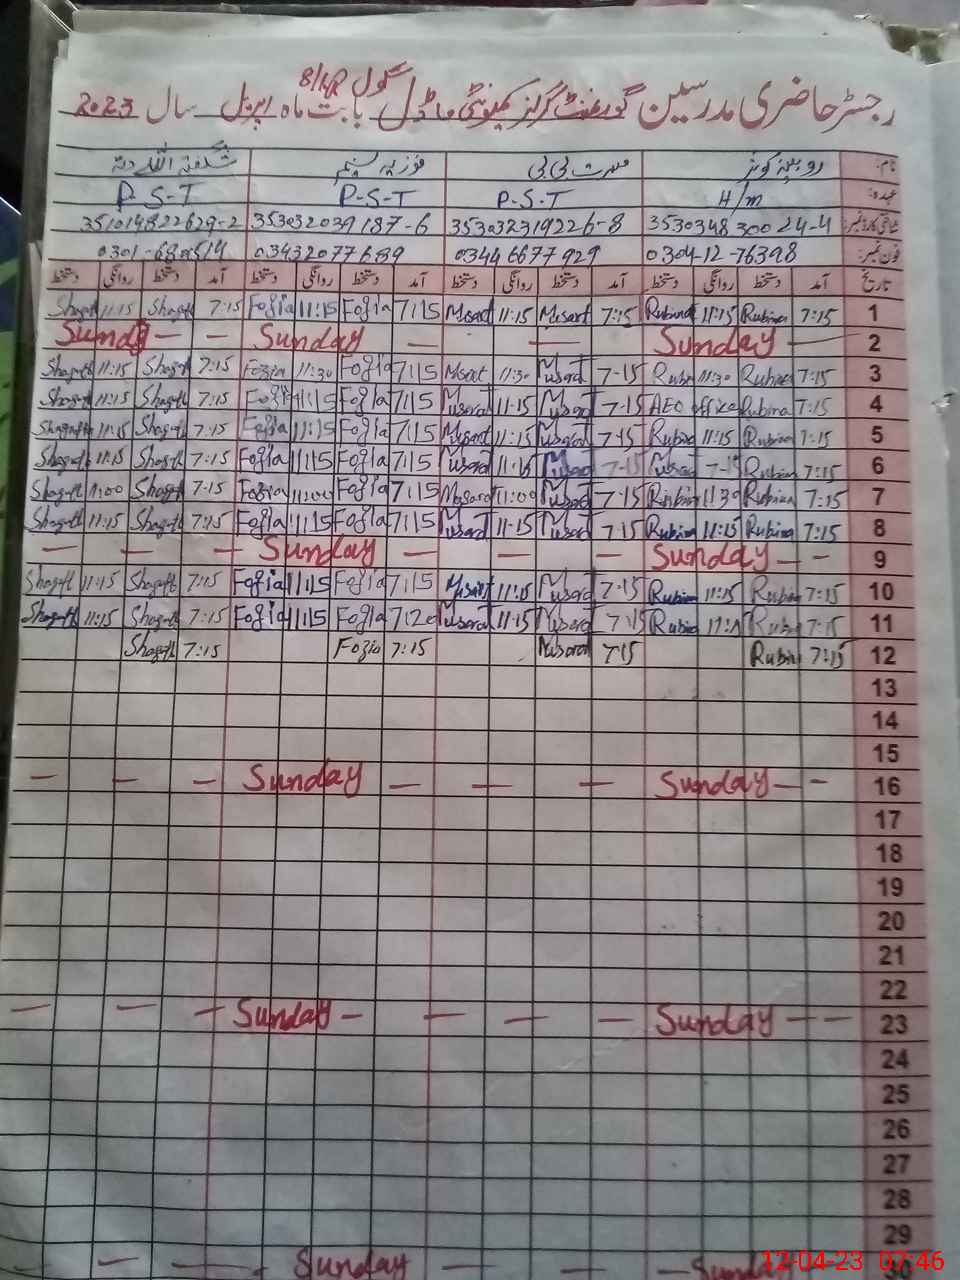 رجسٹر حاضری مدرسین گورنمنٹ گرلز کمیونٹی ماڈل سکول 8/1R بابت ماہ اپریل سال 2023
نام: روبینہ کوثر مسرت بی بی فوزیہ شگفتہ اللہ دتہ
عہدہ: H/m P-S-T P-S-T P-S-T
شناختی کارڈ نمبر: 3530348300 24-4 353032319226-8 353032039187-6 351014822629-2
فون نمبر: 0304-12-76398 0344 6677929
تاریخ آمد دستخط روانگی دستخط آمد دستخط روانگی دستخط آمد دستخط روانگی دستخط آمد دستخط روانگی دستخط
1 7:15 Rubina 11:15 Rubina 7:15 Musart 11:15 Musart 7:15 Fogia 11:15 Fogia 7:15 Shagft 11:15 Shagft
2 Sunday — — Sunday — — Sunday
3 7:15 Rubina 11:30 Rubina 7-15 Musarat 11:30 Musart 7:15 Fogia 11:30 Fogia 7:15 Shagft 11:15 Shagft
4 7:15 Rubina office AEO 7-15 Musarat 11-15 Musarat 7:15 Fogia 11:15 Fogia 7:15 Shagft 11:15 Shagft
5 7:15 Rubina 11:15 Rubina 7:15 Musarat 11:15 Musart 7:15 Fogia 11:15 Fogia 7:15 Shagft 11:15 Shagft
6 7:15 Rubina 7-15 Musarat 7-15 Musarat 11:15 Musarat 7:15 Fogia 11:15 Fogia 7:15 Shagft 11:15 Shagft
7 7:15 Rubina 11:30 Rubina 7-15 Musarat 11:00 Musarat 7:15 Fogia 11:00 Fogia 7:15 Shagft 11:00 Shagft
8 7:15 Rubina 11:15 Rubina 7:15 Musarat 11-15 Musarat 7:15 Fogia 11:15 Fogia 7:15 Shagft 11:15 Shagft
9 — Sunday — — — Sunday — — —
10 7:15 Rubina 11:15 Rubina 7-15 Musarat 11:15 Musart 7:15 Fogia 11:15 Fogia 7:15 Shagft 11:15 Shagft
11 7:15 Rubina Rubina 7:15 Musarat 11:15 Musarat 7:20 Fogia 11:15 Fogia 7:15 Shagft 11:15 Shagft
12 7:15 Rubina 7:15 Musarat 7:15 Fozia 7:15 Shagft
13
14
15
16 — Sunday — — — Sunday — — —
17
18
19
20
21
22
23 — — Sunday — — — — Sunday — — —
24
25
26
27
28
29
30 Sunday — — — Sunday — — —
12-04-23 07:46